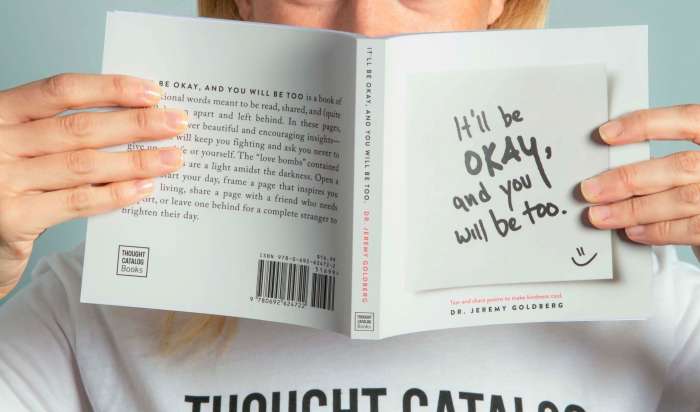 BE OKAY, AND YOU WILL BE TOO is a book of
tional words meant to be read, shared, and (quite
apart and left behind. In these pages,
ver beautiful and encouraging insights—
will keep you fighting and ask you never to
give up life or yourself. The "love bombs" contained
are a light amidst the darkness. Open a
art your day, frame a page that inspires you
living, share a page with a friend who needs
rt, or leave one behind for a complete stranger to
brighten their day.
THOUGHT
CATALOG
Books
ISBN 978-0-692-62472-2
9 780692 624722
IT'LL BE OKAY, AND YOU WILL BE TOO. DR. JEREMY GOLDBERG
THOUGHT
CATALOG
Books
It'll be
OKAY,
and you
will be too.
Tear and share poems to make kindness cool.
DR. JEREMY GOLDBERG
THOUGHT CATALOG